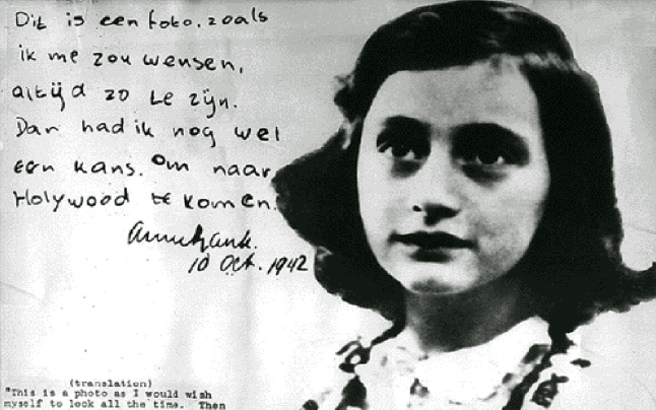 Dit is een foto, zoals
ik me zou wensen,
altijd zo te zijn.
Dan had ik nog wel
een kans. Om naar
Holywood te komen.
Annefrank.
10 Oct. 1942
(translation)
"This is a photo as I would wish
myself to look all the time. Then